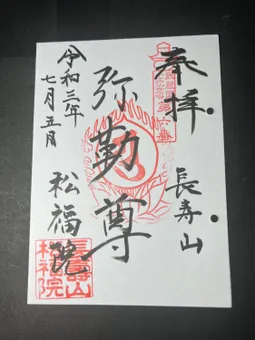 奉拝
第六番
長寿山
弥勒尊
令和三年
七月五日
松福院
長壽山
松福院